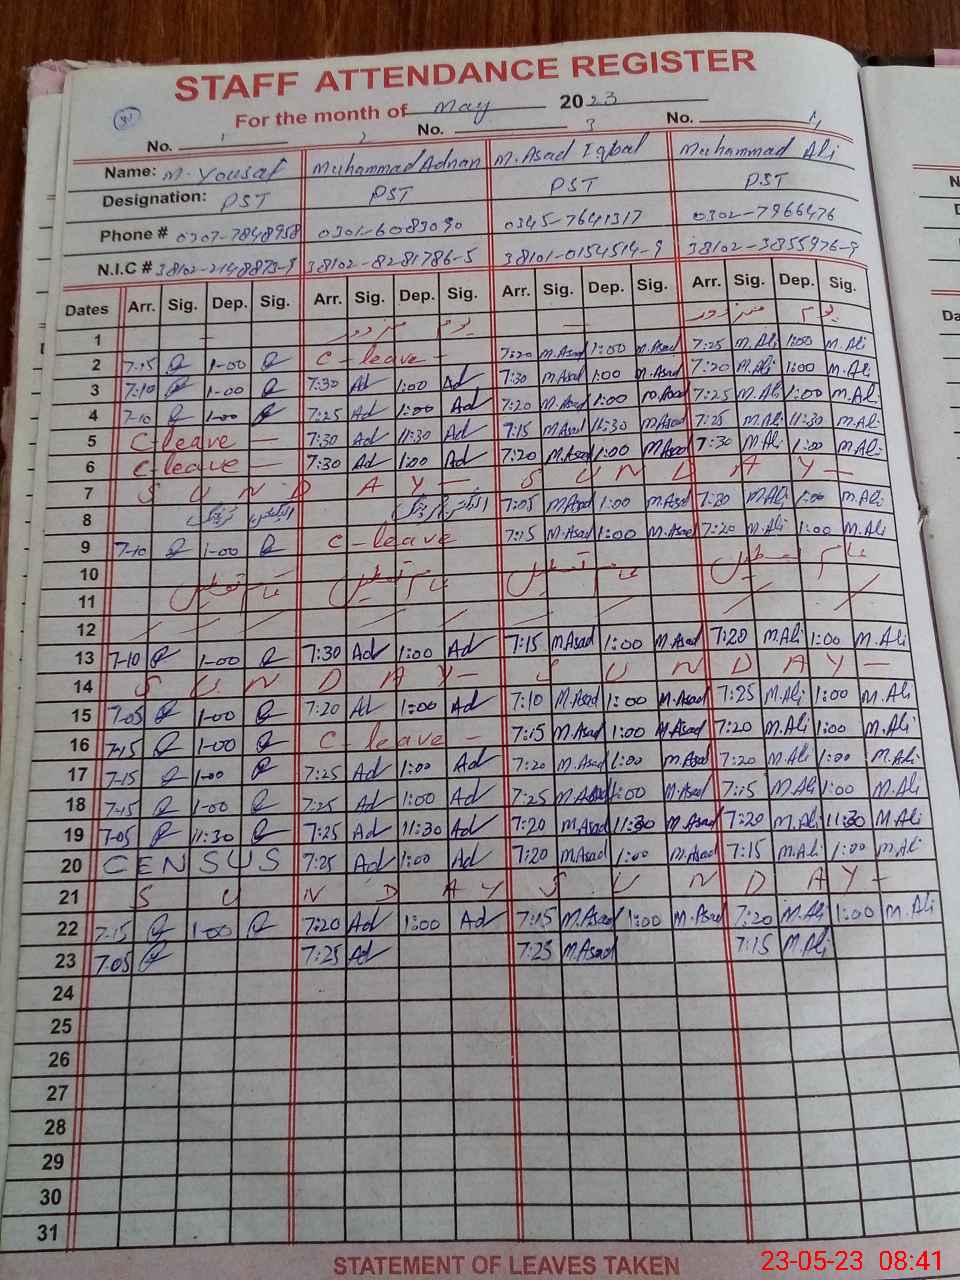 STAFF ATTENDANCE REGISTER
For the month of May 2023
31
No. 1 2 No. 3 No. 4
Name: M. Yousaf Muhammad Adnan M. Asad Iqbal Muhammad Ali
Designation: PST PST PST PST
Phone # 0307-7848958 0301-6083090 0345-7641317 0302-7966476
N.I.C # 38102-2148873-9 38102-8281786-5 38101-0154514-9 38102-3855976-9
Dates Arr. Sig. Dep. Sig. Arr. Sig. Dep. Sig. Arr. Sig. Dep. Sig. Arr. Sig. Dep. Sig.
1 — یوم مزدور — یوم مزدور
2 7-15 1-00 C-leave - 7:20 M.Asad 1:00 M.Asad 7:25 M.Ali 1:00 M.Ali
3 7-10 1-00 7:30 Ad 1:00 Ad 7:30 M.Asad 1:00 M.Asad 7:20 M.Ali 1:00 M.Ali
4 7-10 1-00 7:25 Ad 1:00 Ad 7:20 M.Asad 1:00 M.Asad 7:25 M.Ali 1:00 M.Ali
5 C leave — 7:30 Ad 11:30 Ad 7:15 M.Asad 11:30 M.Asad 7:25 M.Ali 11:30 M.Ali
6 C leave — 7:30 Ad 1:00 Ad 7:20 M.Asad 1:00 M.Asad 7:30 M.Ali 1:00 M.Ali
7 S U N D A Y — S U N D A Y —
8 الیکشن ٹریننگ الیکشن ٹریننگ 7:05 M.Asad 1:00 M.Asad 7:20 M.Ali 1:00 M.Ali
9 7-10 1-00 C-leave 7:15 M.Asad 1:00 M.Asad 7:20 M.Ali 1:00 M.Ali
10
11 عام تعطیل عام تعطیل عام تعطیل عام تعطیل
12
13 7-10 1-00 7:30 Ad 1:00 Ad 7:15 M.Asad 1:00 M.Asad 7:20 M.Ali 1:00 M.Ali
14 S U N D A Y — S U N D A Y —
15 7-05 1-00 7:20 Ad 1:00 Ad 7:10 M.Asad 1:00 M.Asad 7:25 M.Ali 1:00 M.Ali
16 7-15 1-00 C-leave - 7:15 M.Asad 1:00 M.Asad 7:20 M.Ali 1:00 M.Ali
17 7-15 1-00 7:25 Ad 1:00 Ad 7:20 M.Asad 1:00 M.Asad 7:20 M.Ali 1:00 M.Ali
18 7-15 1-00 7:25 Ad 1:00 Ad 7:25 M.Asad 1:00 M.Asad 7:15 M.Ali 1:00 M.Ali
19 7-05 11:30 7:25 Ad 11:30 Ad 7:20 M.Asad 11:30 M.Asad 7:20 M.Ali 11:30 M.Ali
20 CENSUS 7:25 Ad 1:00 Ad 7:20 M.Asad 1:00 M.Asad 7:15 M.Ali 1:00 M.Ali
21 S U N D A Y S U N D A Y —
22 7-15 1-00 7:20 Ad 1:00 Ad 7:15 M.Asad 1:00 M.Asad 7:20 M.Ali 1:00 M.Ali
23 7-05 7:25 Ad 7:25 M.Asad 7:15 M.Ali
24
25
26
27
28
29
30
31
STATEMENT OF LEAVES TAKEN
23-05-23 08:41